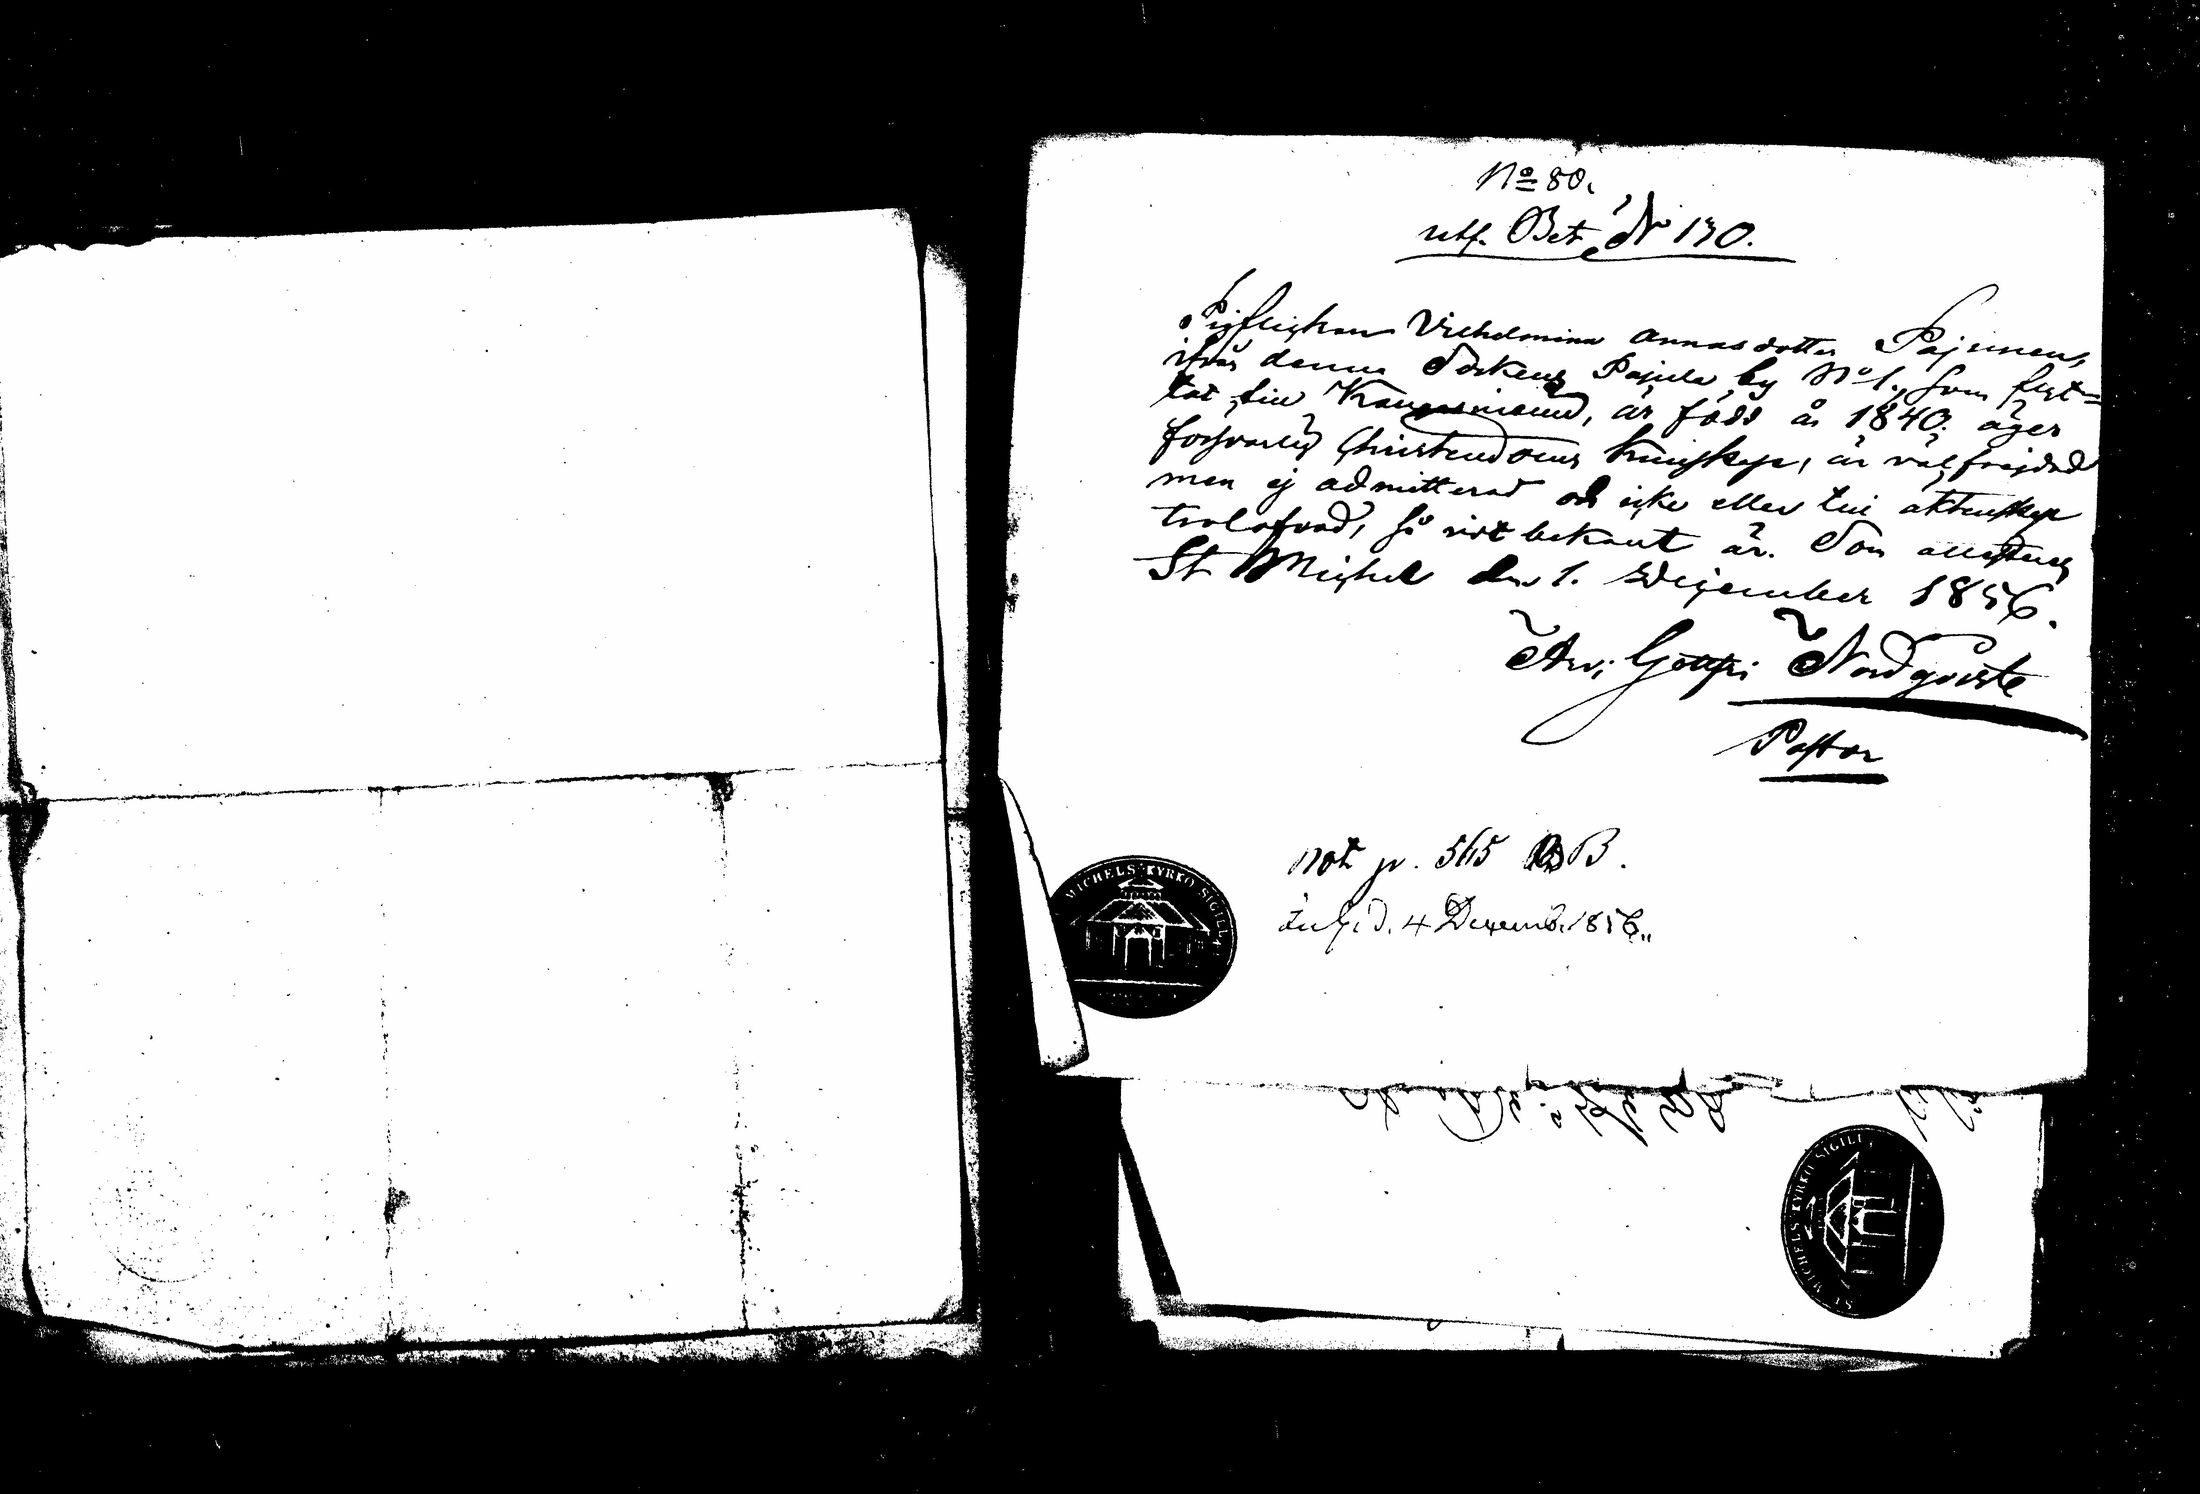 No 80.
utf. Bet. N 130.
Pigflickan Vilhelmina Annasdotter Pajunen,
ifrån denna Sockens Pajula by No 1, som flyt-
tat till Kangasniemi, är född år 1840, äger
försvarlig Christendoms kunskap, är väl frejdad
men ej admitterad och icke eller till äktenskap
trolofvad, så vidt bekant är. Som attesteras
St Michel den 1. December 1856.
Nordqviste
Pastor
not p. 565 B.
d. 4 Decemb. 1856.
MICHELS KYRKO SIGILL
ST MICHELS KYRKO SIGILL